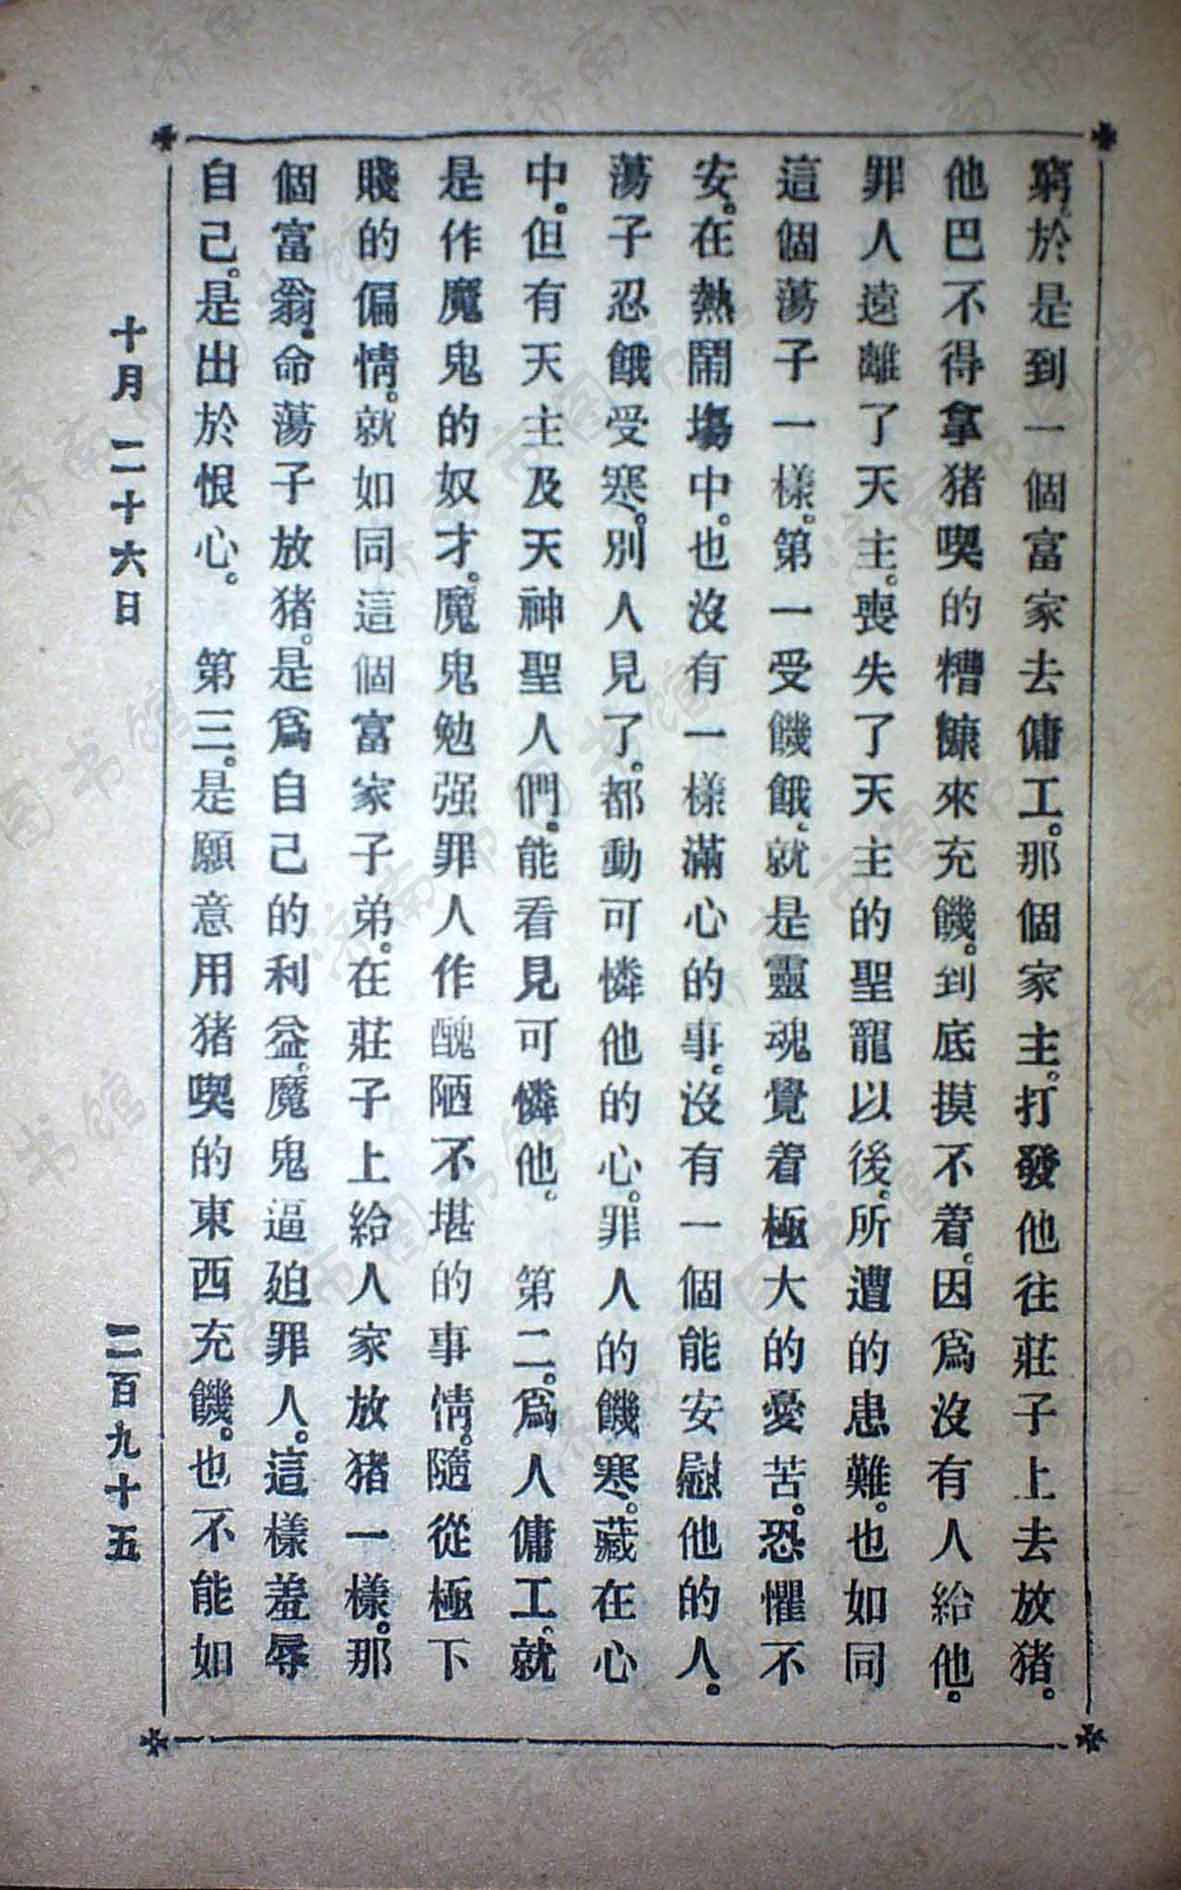 窮。於是到一個富家去傭工。那個家主。打發他往莊子上去放猪。
他巴不得拿猪喫的糟糠來充饑。到底摸不着。因爲沒有人給他。
罪人遠離了天主。喪失了天主的聖寵以後。所遭的患難。也如同
這個蕩子一樣。第一受饑餓、就是靈魂覺着極大的憂苦。恐懼不
安。在熱鬧塲中。也沒有一樣滿心的事。沒有一個能安慰他的人。
蕩子忍餓受寒。別人見了。都動可憐他的心。罪人的饑寒。藏在心
中。但有天主及天神聖人們。能看見可憐他。　第二。爲人傭工。就
是作魔鬼的奴才。魔鬼勉强罪人作醜陋不堪的事情。隨從極下
賤的偏情。就如同這個富家子弟。在莊子上給人家放猪一樣。那
個富翁。命蕩子放猪。是爲自己的利益。魔鬼逼廹罪人。這樣羞辱
自己。是出於恨心。　第三。是願意用猪喫的東西充饑。也不能如
十月二十六日　二百九十五
济南市图书馆